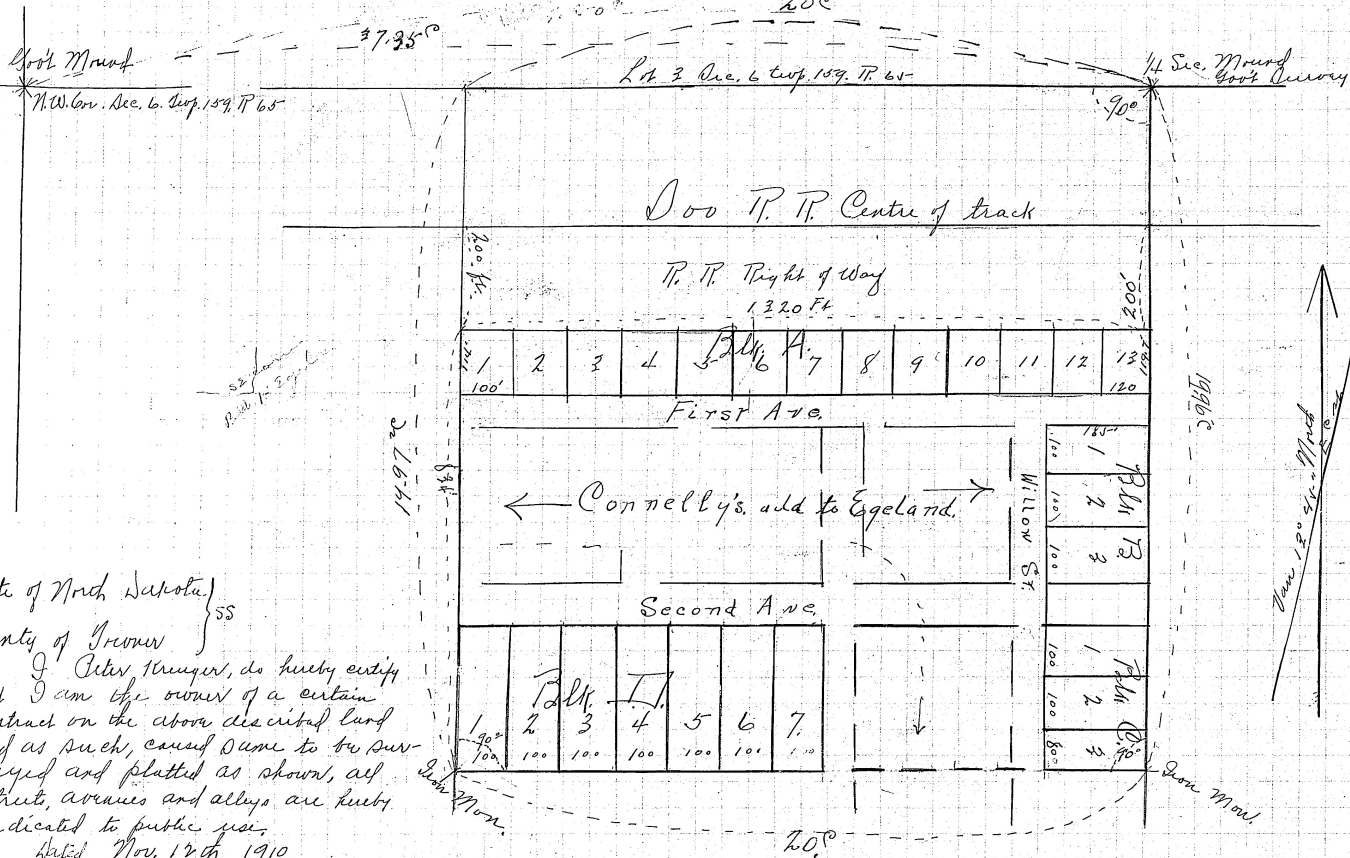 20c
37.35c
Gov't Mound
N.W. Cor. Sec. 6. Twp. 159. R 65
Lot 3 Sec. 6 twp. 159. R. 65
1/4 Sec. Mound
Gov't Survey
90°
Soo R. R. Centre of track
200 ft.
R. R. Right of Way
1320 Ft
200'
Blk. A.
1 2 3 4 5 6 7 8 9 10 11 12 13
100' 120
First Ave.
19.96c
Connelly's. add to Egeland.
Willow St.
185'
Blk B
1 2 3
100 100 100
Var 12° North
Second Ave.
Blk. D.
1 2 3 4 5 6 7.
90°
100 100 100 100 100 100 100
Blk C.
1 2 3
100 100 80
90°
Iron Mon.
Iron Mon.
20.c
te of North Dakota } SS
nty of Towner
I Peter Krueger, do hereby certify
I am the owner of a certain
tract on the above described land
d as such, caused same to be sur-
eyed and platted as shown, all
treets, avenues and alleys are hereby
dicated to public use.
Dated Nov. 12th 1910